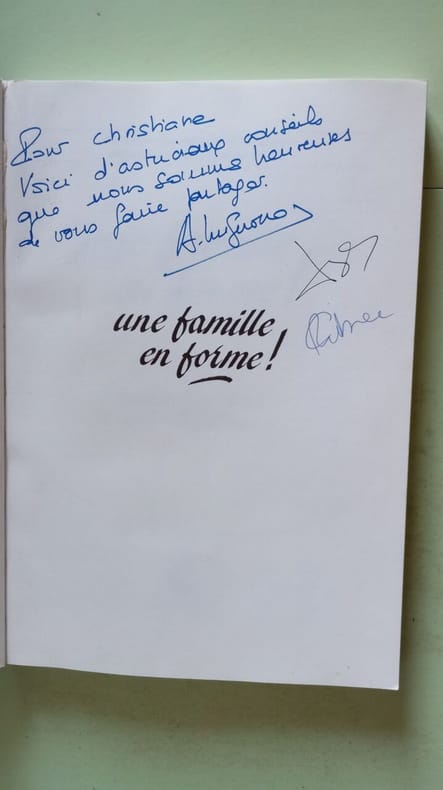 Pour Christiane
Voici d'astucieux conseils
que nous sommes heureuses
de vous faire partager.
une famille
en forme!